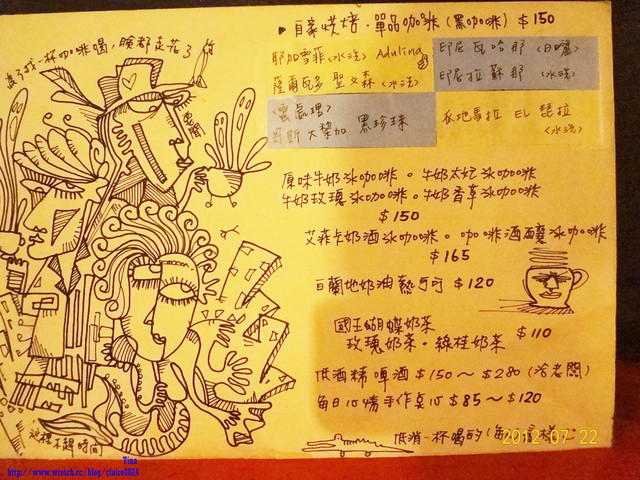 為了找一杯咖啡喝，臉都走花了
▸自家烘焙・單品咖啡(黑咖啡) $150
耶加雪菲〈水洗〉 Adulina
薩爾瓦多 聖文森〈水洗〉
印尼 瓦哈那〈日曬〉
印尼 拉蘇那〈水洗〉
哥斯大黎加 黑珍珠
瓜地馬拉 EL
〈水洗〉
原味牛奶冰咖啡。牛奶太妃冰咖啡
牛奶玫瑰冰咖啡。牛奶香草冰咖啡
$150
艾菲卡奶酒冰咖啡。咖啡酒釀冰咖啡
$165
白蘭地奶油熱可可 $120
國王蝴蝶奶茶
玫瑰奶茶・綠桂奶茶 $110
低酒精啤酒 $150～$280 (洽老闆)
每日心情手作點心 $85～$120
低消一杯喝的(每
2012-07-22
這裡不趕時間
Tina
http://www.wretch.cc/blog/claire0824